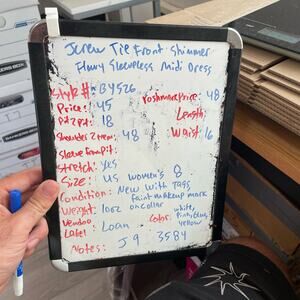 Screw Tie Front Shimmer
Flowy Sleeveless Midi Dress
Style #: BY526
Price: 45
Poshmark Price: 48
Pit 2 pit: 18
Length:
Shoulder 2 Hem: 48
Waist: 16
Sleeve from Pit:
Stretch: yes
Size: US women's 8
Condition: New with Tags
faint makeup mark
on collar
Weight: 10oz
Color: white,
yellow
Vendoo
Label: Loan
Notes: J9 3584
BANKERS BOX